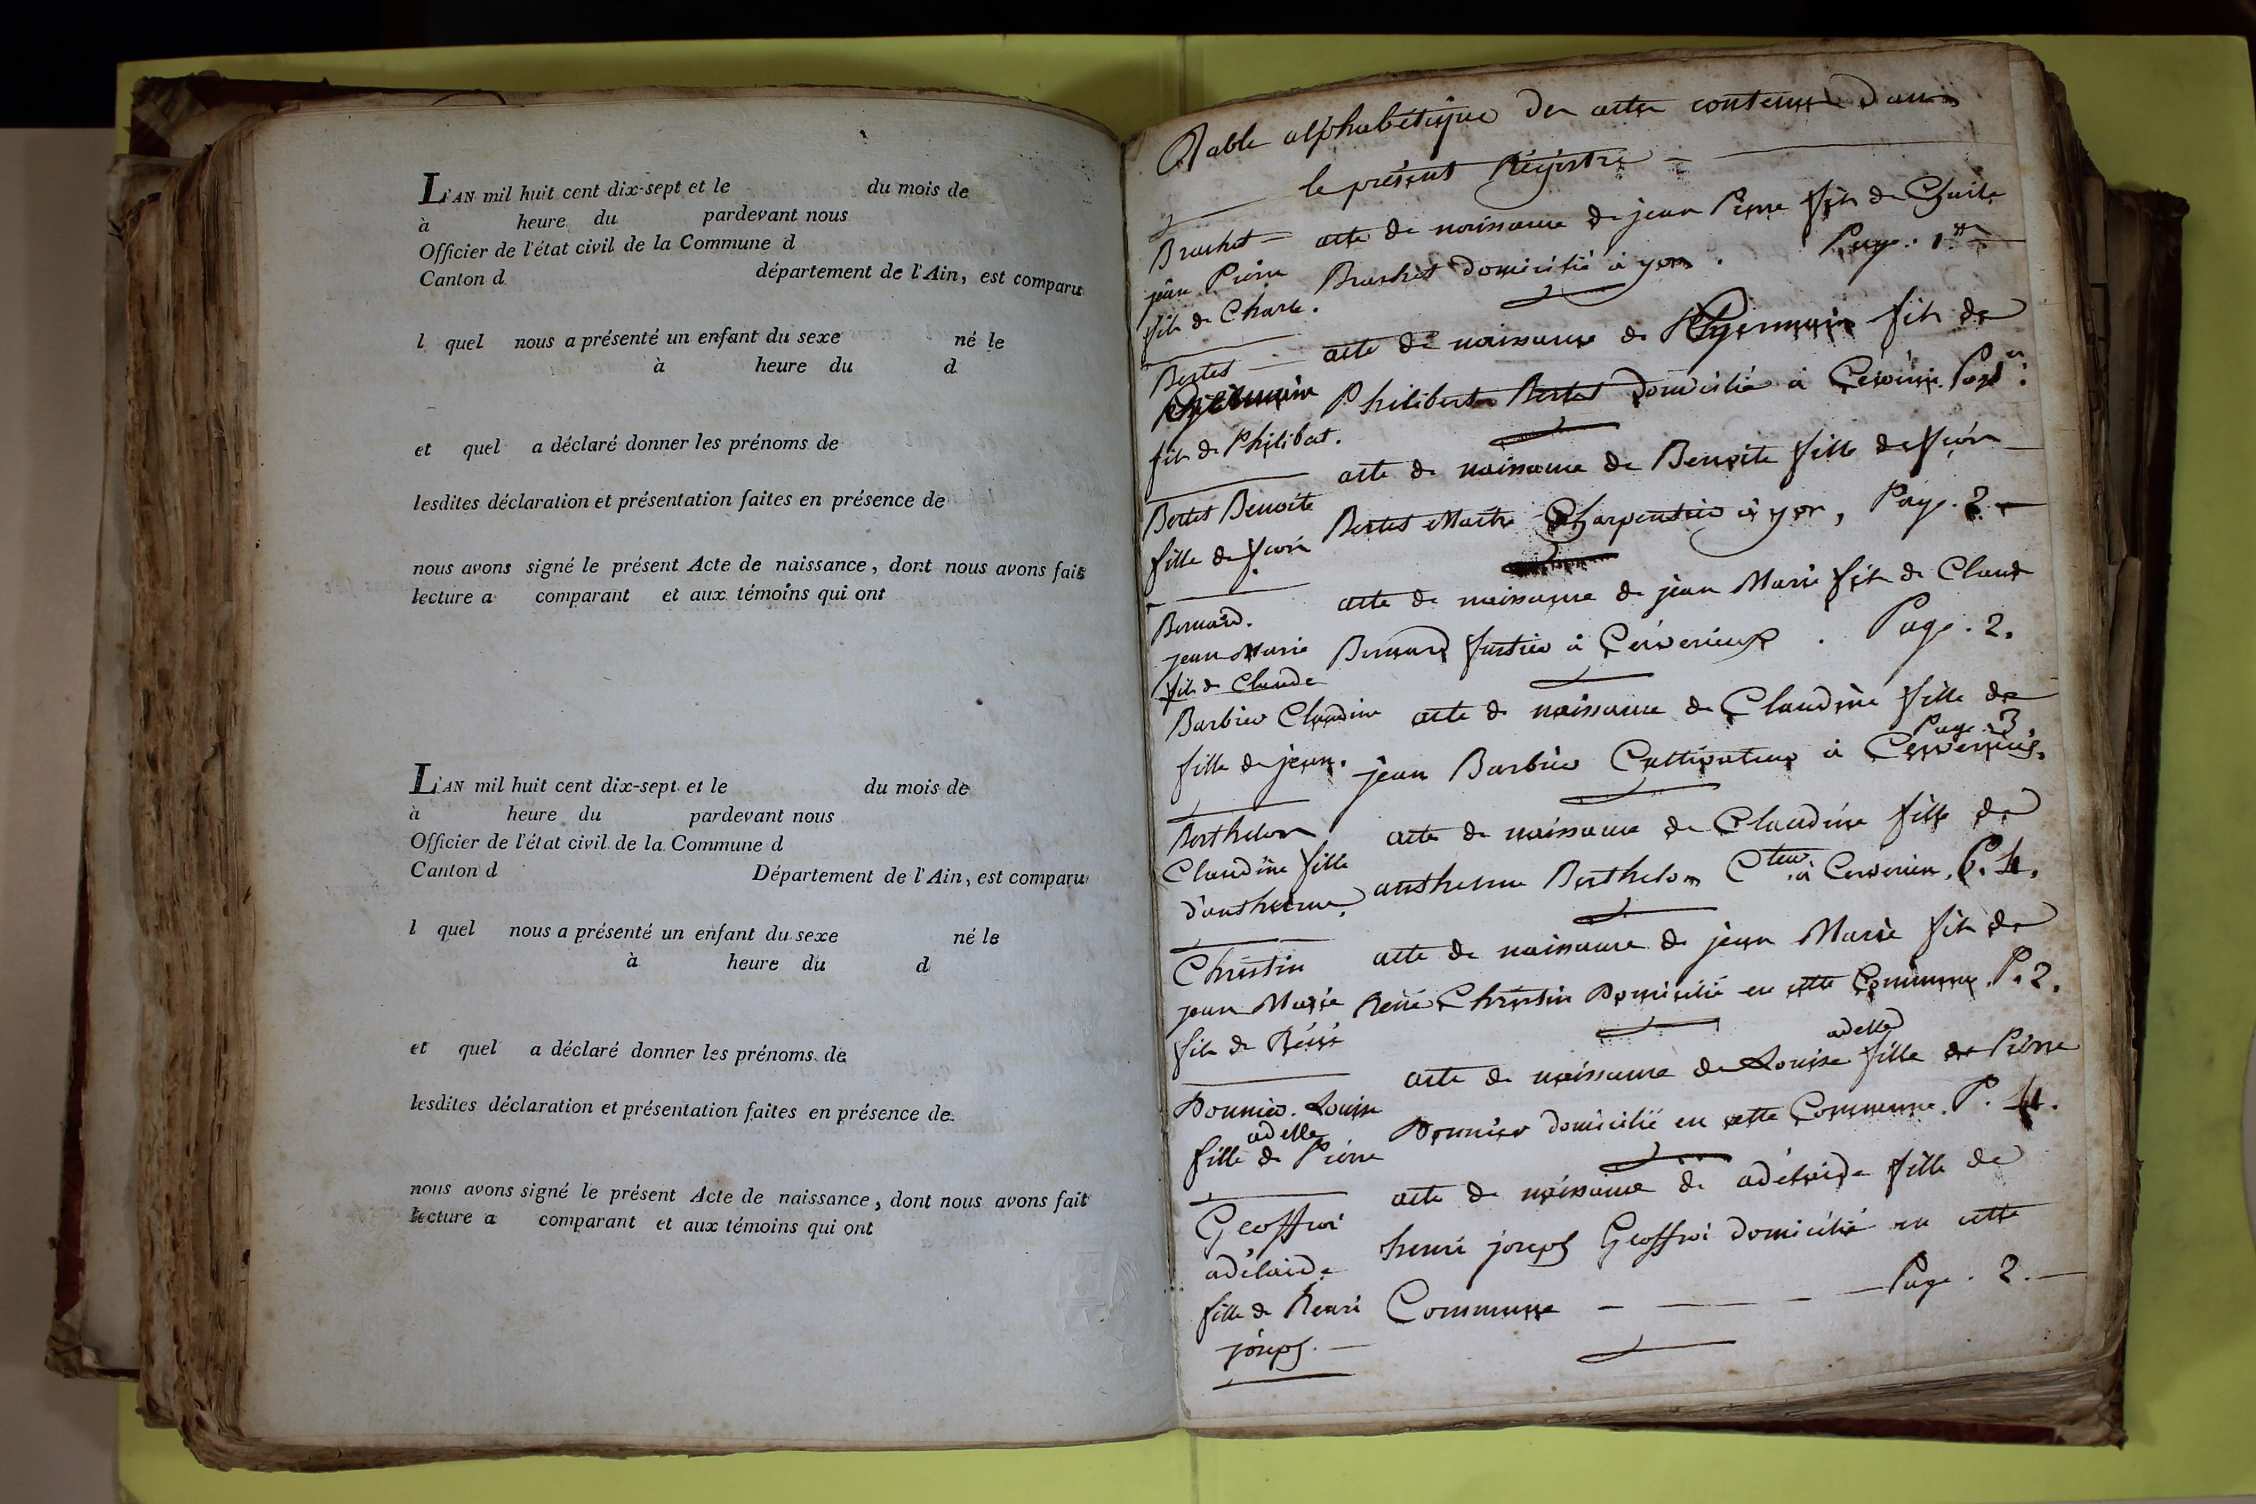 L'AN mil huit cent dix-sept et le du mois de
à heure du pardevant nous
Officier de l'état civil de la Commune d
Canton d département de l'Ain, est comparu
l quel nous a présenté un enfant du sexe né le
à heure du d
et quel a déclaré donner les prénoms de
lesdites déclaration et présentation faites en présence de
nous avons signé le présent Acte de naissance, dont nous avons fait
lecture a comparant et aux témoins qui ont
L'AN mil huit cent dix-sept et le du mois de
à heure du pardevant nous
Officier de l'état civil de la Commune d
Canton d Département de l'Ain, est comparu
l quel nous a présenté un enfant du sexe né le
à heure du d
et quel a déclaré donner les prénoms de
lesdites déclaration et présentation faites en présence de
nous avons signé le présent Acte de naissance, dont nous avons fait
lecture a comparant et aux témoins qui ont
Table alphabétique des actes contenus dans
le présent Régistre
Brachet
jean Pierre
fils de Charle.
acte de naissance de jean Pierre fils de Charle
Brachet domicilié à yon. Page. 1re
Bertet
germain
fils de Philibert.
acte de naissance de germain fils de
Philibert Bertet domicilié à
Bertet Benoite
fille de
acte de naissance de Benoite fille de
Bertet Maitre Charpentier à yon, Page. 2
Bernard.
jean Marie
fils de Claude
acte de naissance de jean Marie fils de Claude
Bernard à Cerverieux. Page. 2.
Barbier Claudine
fille de jean.
acte de naissance de Claudine fille de
Page 3
jean Barbier Cultivateur à Cerverieux.
Berthelon
Claudine fille
d'anthelme.
acte de naissance de Claudine fille de
anthelme Berthelon Cteur à Cerverieu. P. 4.
Christin
jean Marie
fils de Réné
acte de naissance de jean Marie fils de
Réné Christin Domicilié en cette Commune. P. 2.
Donnier. Louise
adelle
fille de Pierre
adelle
acte de naissance de Louise fille de Pierre
Donnier domicilié en cette Commune. P. 4.
Geoffroi
adélaide
fille de henri
joseph.
acte de naissance de adélaide fille de
henri joseph Geoffroi domicilié en cette
Commune Page. 2.